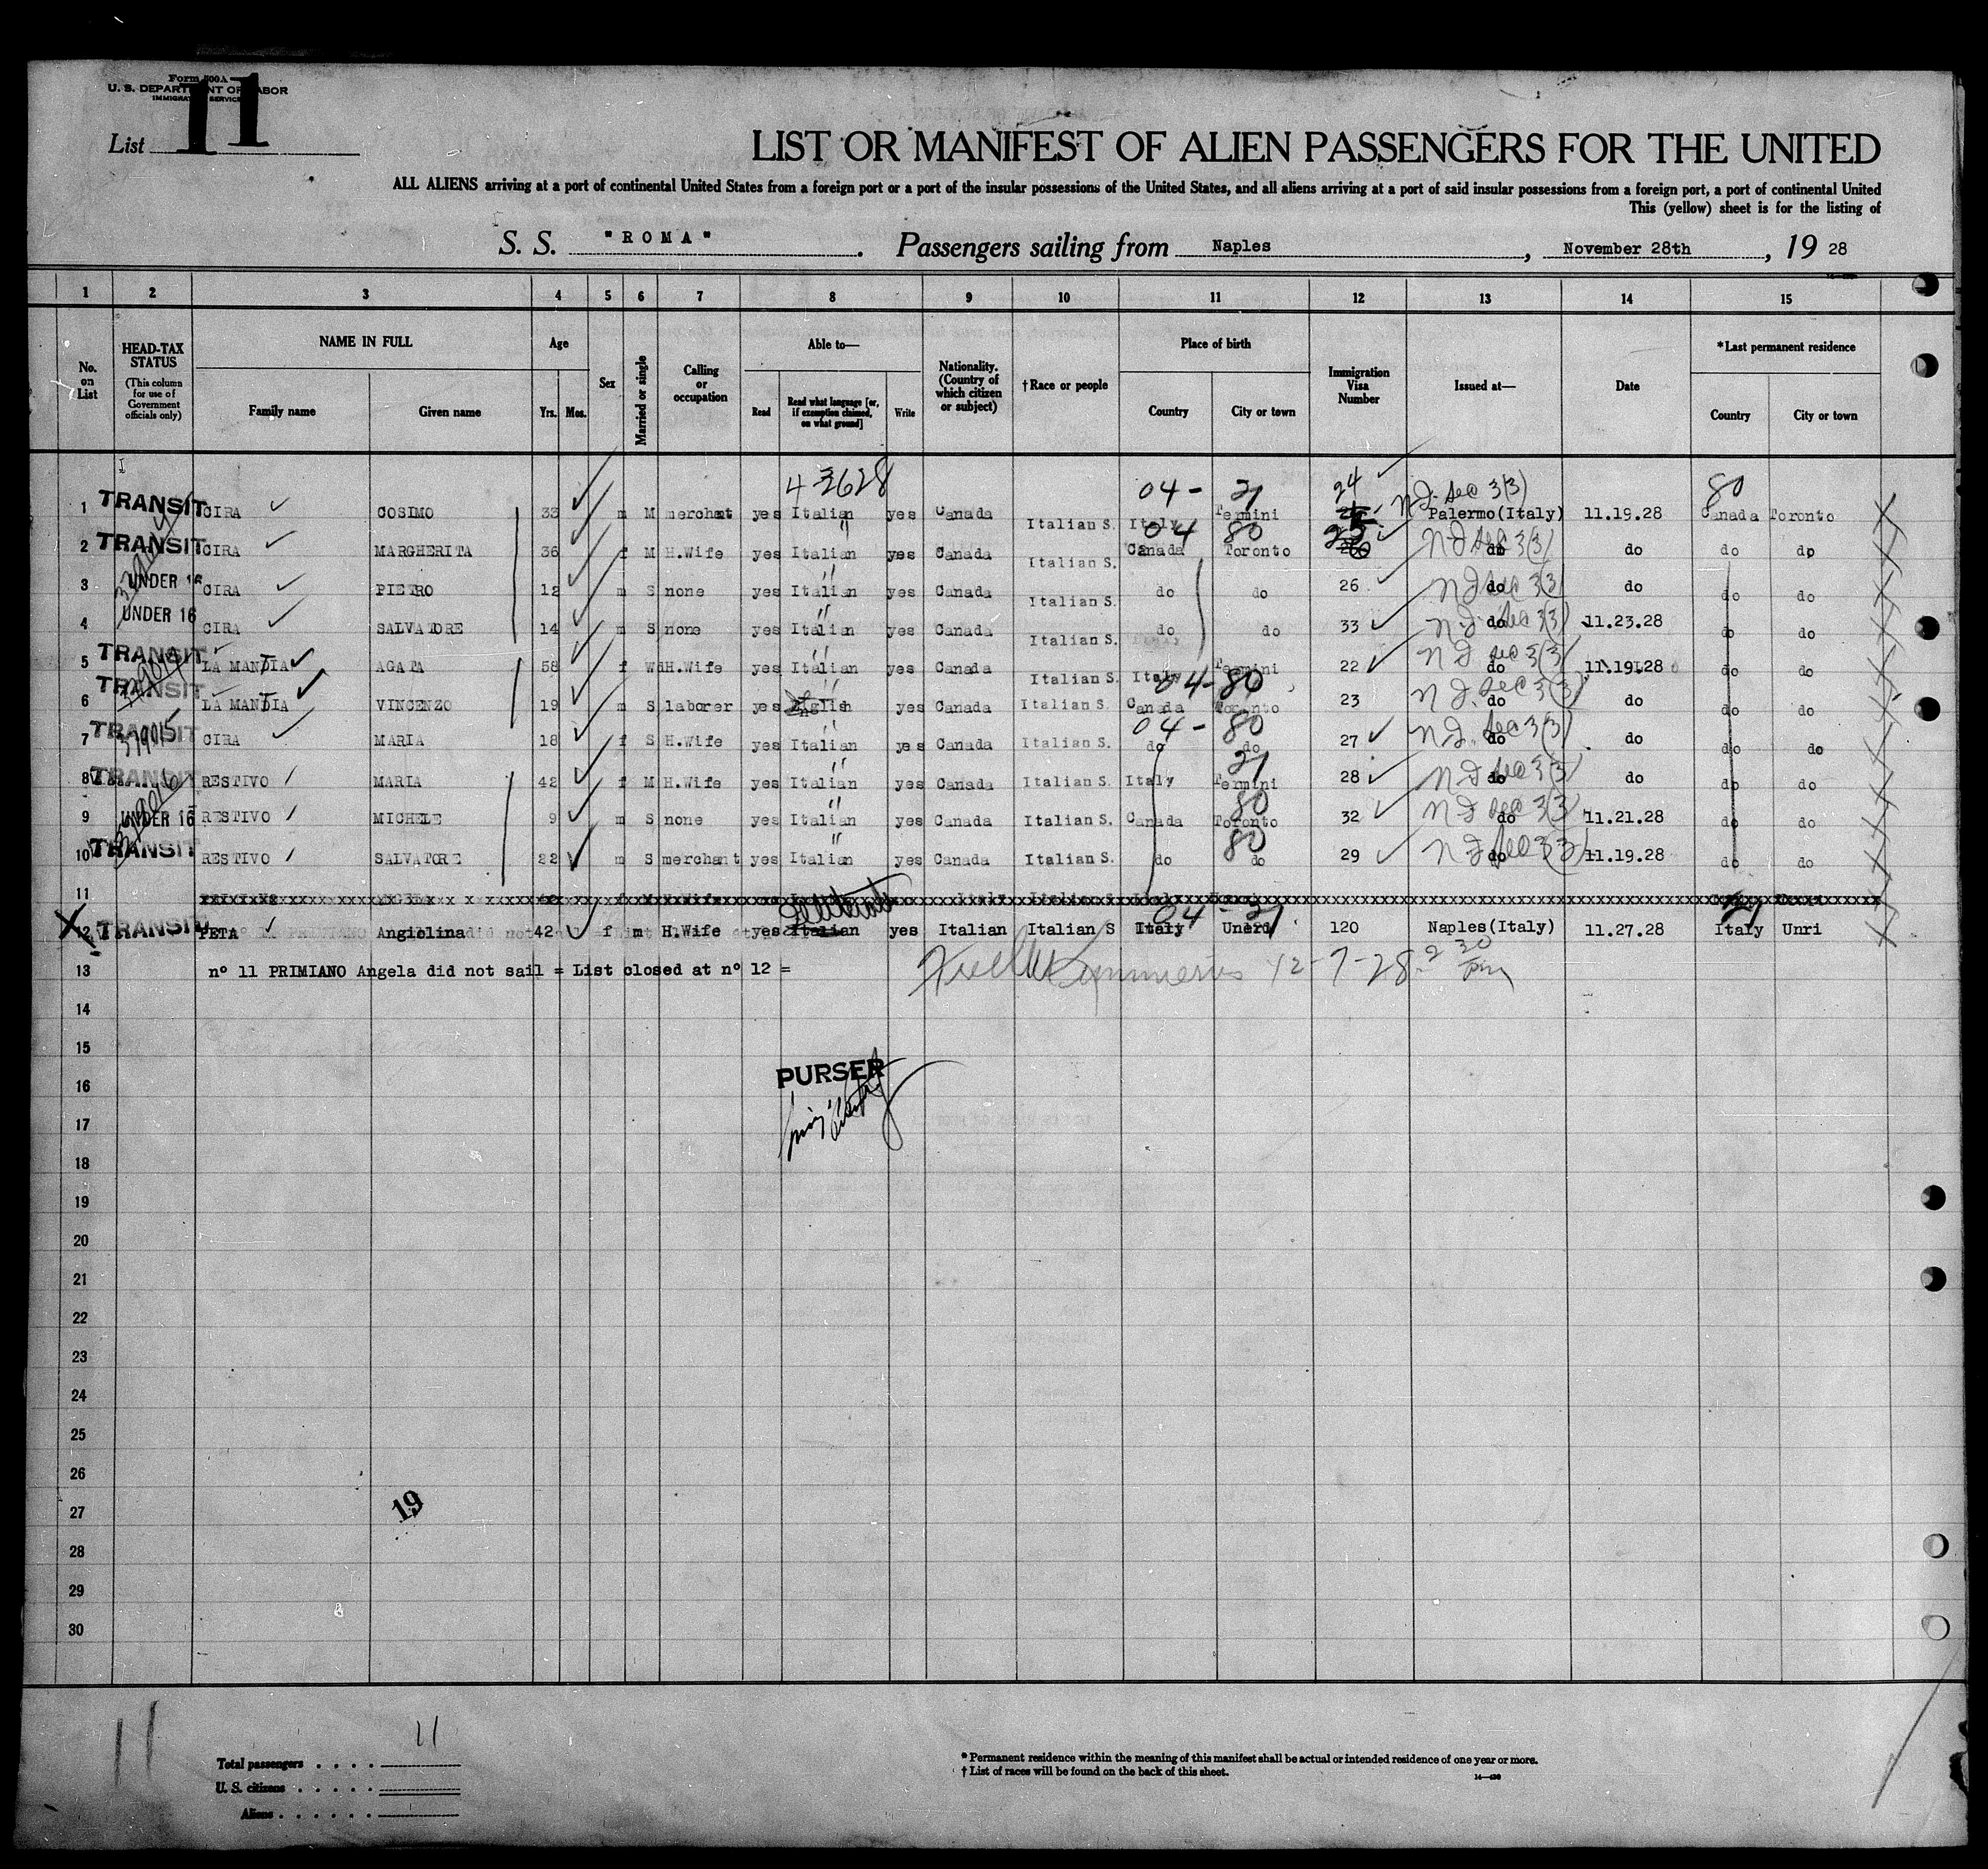 Form 500A
U. S. DEPARTMENT OF LABOR
IMMIGRATION SERVICE
List 11
LIST OR MANIFEST OF ALIEN PASSENGERS FOR THE UNITED
ALL ALIENS arriving at a port of continental United States from a foreign port or a port of the insular possessions of the United States, and all aliens arriving at a port of said insular possessions from a foreign port, a port of continental United
This (yellow) sheet is for the listing of
S. S. "ROMA". Passengers sailing from Naples, November 28th, 19 28
1 2 3 4 5 6 7 8 9 10 11 12 13 14 15
No. on List
HEAD-TAX STATUS (This column for use of Government officials only)
NAME IN FULL Family name Given name
Age Yrs. Mos.
Sex
Married or single
Calling or occupation
Able to— Read Read what language [or, if exemption claimed, on what ground] Write
Nationality. (Country of which citizen or subject)
†Race or people
Place of birth Country City or town
Immigration Visa Number
Issued at—
Date
*Last permanent residence Country City or town
4-3628 04- 21 24 80
1 TRANSIT CIRA COSIMO 33 m M merchat yes Italian yes Canada Italian S. Italy Termini NJ. Sec 3(3) Palermo(Italy) 11.19.28 Canada Toronto
04 80
2 TRANSIT CIRA MARGHERITA 36 f M H.Wife yes Italian " yes Canada Italian S. Canada Toronto 25 do do do do
3 UNDER 16 CIRA PIETRO 12 m S none yes Italian " yes Canada Italian S. do do 26 do do do do
4 UNDER 16 CIRA SALVATORE 14 m S none yes Italian " yes Canada Italian S. do do 33 do 11.23.28 do do
5 TRANSIT LA MANTIA AGATA 58 f Wd H.Wife yes Italian " yes Canada Italian S. Italy Termini 22 do 11.19.28 do do
04-80
6 TRANSIT LA MANTIA VINCENZO 19 m S laborer yes English yes Canada Italian S. Canada Toronto 23 do do do do
04-80
7 TRANSIT CIRA MARIA 18 f S H.Wife yes Italian " yes Canada Italian S. do do 27 do do do do
21
8 TRANSIT RESTIVO MARIA 42 f M H.Wife yes Italian " yes Canada Italian S. Italy Termini 28 do do do do
80
9 UNDER 16 RESTIVO MICHELE 9 m S none yes Italian " yes Canada Italian S. Canada Toronto 32 do 11.21.28 do do
80
10 TRANSIT RESTIVO SALVATORE 22 m S merchant yes Italian " yes Canada Italian S. do do 29 do 11.19.28 do do
11
04-21 21
12 TRANSIT PETA Angiolina 42 f m H.Wife yes Italian yes Italian Italian S Italy 120 Naples(Italy) 11.27.28 Italy Unri
13 nº 11 PRIMIANO Angela did not sail = List closed at nº 12 = 12-7-28 2 30 pm
14
15
PURSER
16
17
18
19
20
21
22
23
24
25
26
27 19
28
29
30
11
Total passengers . . . . 11
U. S. citizens . . . . .
Aliens . . . . . .
* Permanent residence within the meaning of this manifest shall be actual or intended residence of one year or more.
† List of races will be found on the back of this sheet.